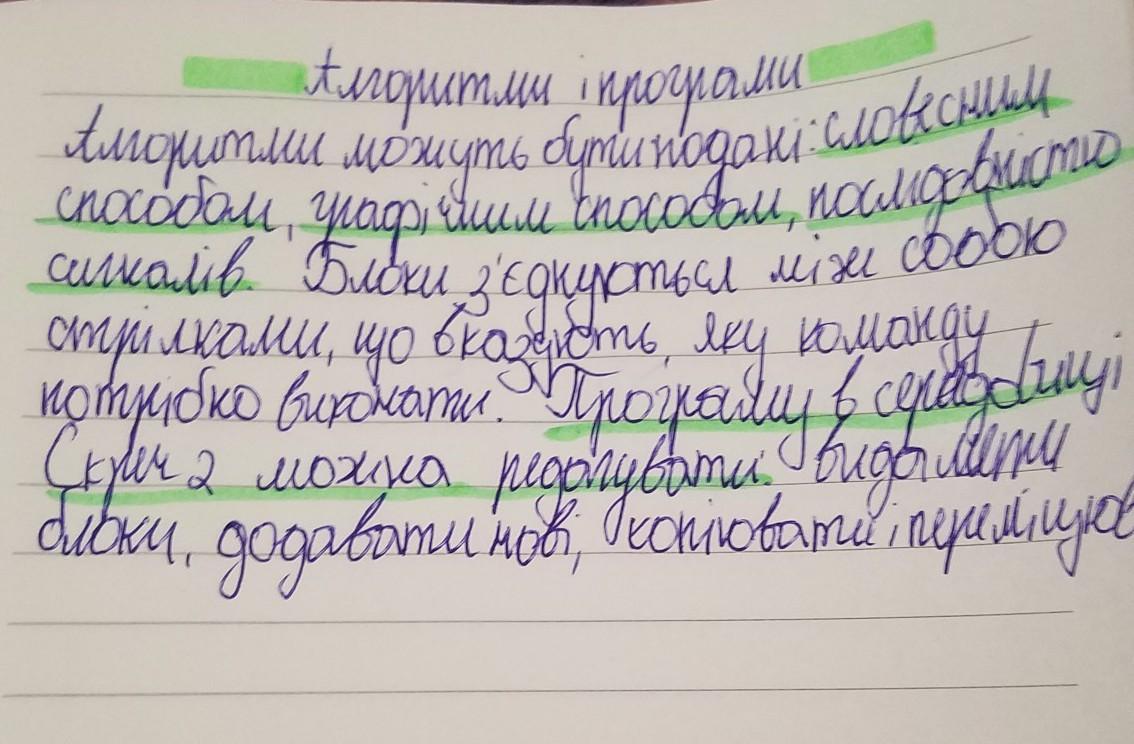 Алгоритми і програми
Алгоритми можуть бути подані: словесним
способом, графічним способом, послідовністю
сигналів. Блоки з'єднуються між собою
стрілками, що вказують, яку команду
потрібно виконати. Програму в середовищі
Скретч 2 можна редагувати. видаляти
блоки, додавати нові, копіювати і переміщюв